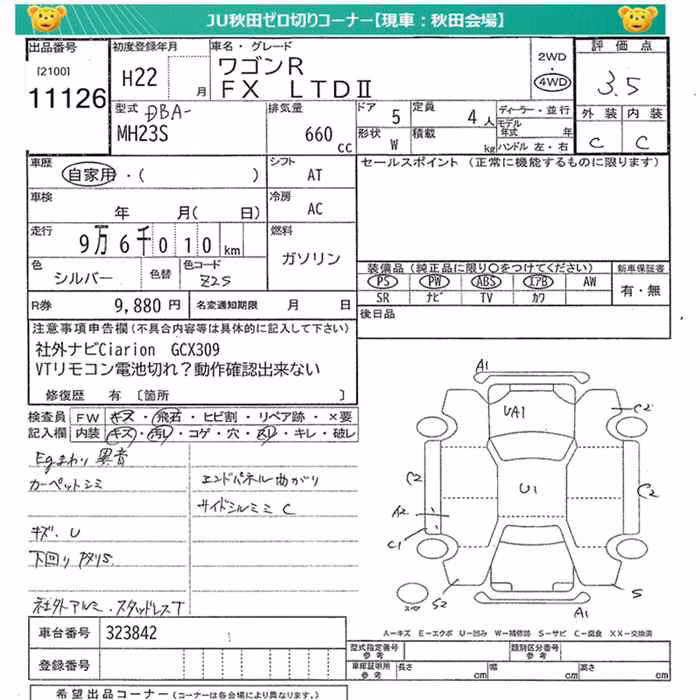 JU秋田ゼロ切りコーナー【現車：秋田会場】
出品番号
[2100]
11126
初度登録年月
H22 月
車名・グレード
ワゴンR
FX LTDⅡ
2WD
・
4WD
評価点
3.5
外装 内装
C C
型式 DBA-
MH23S
排気量
660 cc
ドア 5
定員 4 人
形状 W
積載 kg
ディーラー・並行
モデル年式 年
ハンドル 左・右
車歴
自家用・( )
シフト
AT
セールスポイント (正常に機能するものに限ります)
車検
年 月( 日)
冷房
AC
走行
9万6千010 km
燃料
ガソリン
色
シルバー
色替
色コード
Z2S
装備品 (純正品に限り○をつけてください)
PS PW ABS エアB AW
SR ナビ TV カワ
新車保証書
有・無
R券 9,880 円
名変通知期限 月 日
後日品
注意事項申告欄 (不具合内容等は具体的に記入して下さい)
社外ナビCiarion GCX309
VTリモコン電池切れ？動作確認出来ない
修復歴 有 [箇所 ]
検査員
記入欄
FW キズ・飛石・ヒビ割・リペア跡・×要
内装 キズ・汚レ・コゲ・穴・スレ・キレ・破レ
Egまわり 異音
カーペットシミ
キズ．U
下回り アタリS
社外アルミ．スタッドレスT
エンドパネル曲がり
サイドシルミミ C
A1
UA1
C2
C2
U1
C2
A2
C1
S2
S
A1
A－キズ E－エクボ U－凹み W－補修跡 S－サビ C－腐食 XX－交換済
車台番号 323842
登録番号
型式指定番号
参考
類別区分番号
参考
車庫証明用
参考
長さ cm
幅 cm
高さ cm
希望出品コーナー (コーナーは各会場により異なります。)